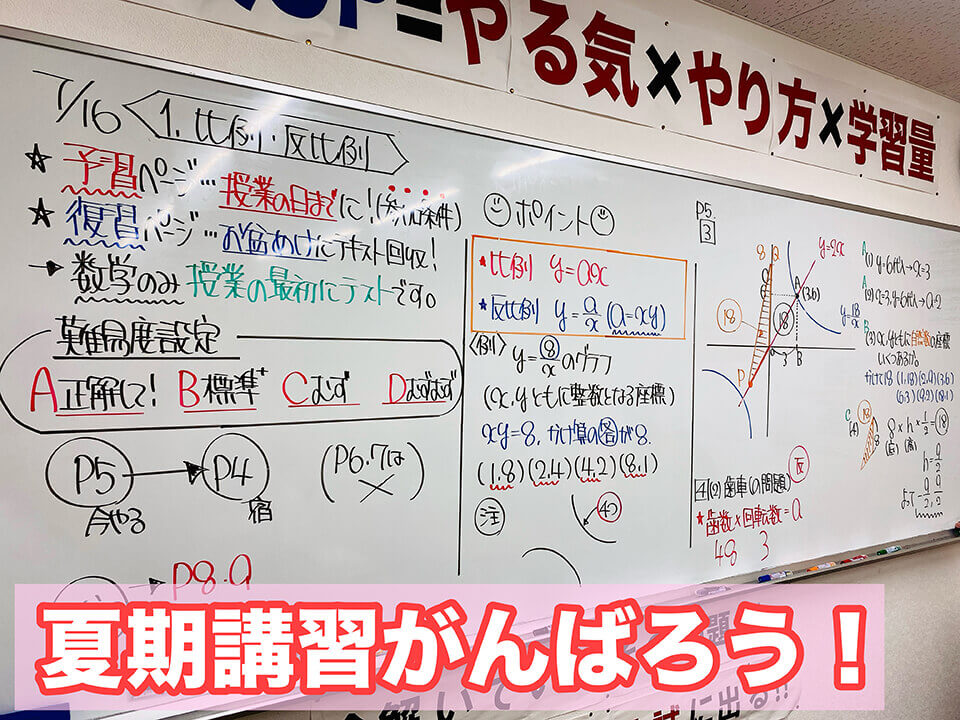 UP=やる気×やり方×学習量
7/16 1. 比例・反比例
★ 予習ページ…授業の日までに!(参加条件)
★ 復習ページ…お盆あけにテキスト回収!
→ 数学のみ 授業の最初にテストです。
難易度設定
A正解して! B標準+ Cむず Dむずむず
P5 → P4 (P6.7は×)
今やる 宿
→ P8.9
ポイント
★比例 y=ax
★反比例 y=a/x (a=xy)
〈例〉 y=8/xのグラフ
(x,yともに整数となる座標)
xy=8, かけ算の答が8.
(1,8)(2,4)(4,2)(8,1)
注
P5.
3
8 Q
y=2x
A (3,6)
y=18/x
18
18
3
B
P
4(2)歯車の問題) 反
★歯数×回転数=a
48 3
A(1) y=6代入→x=3
A(2) x=3,y=6代入→a=2
B(3) x,yともに自然数の座標
いくつあるか。
かけて18 (1,18)(2,9)(3,6)
(6,3)(9,2)(18,1)
C(4) 18
8
8×h×1/2=18
(底)(高)
h=9/2
よって -9/2, 9/2
夏期講習がんばろう!
に出る!!